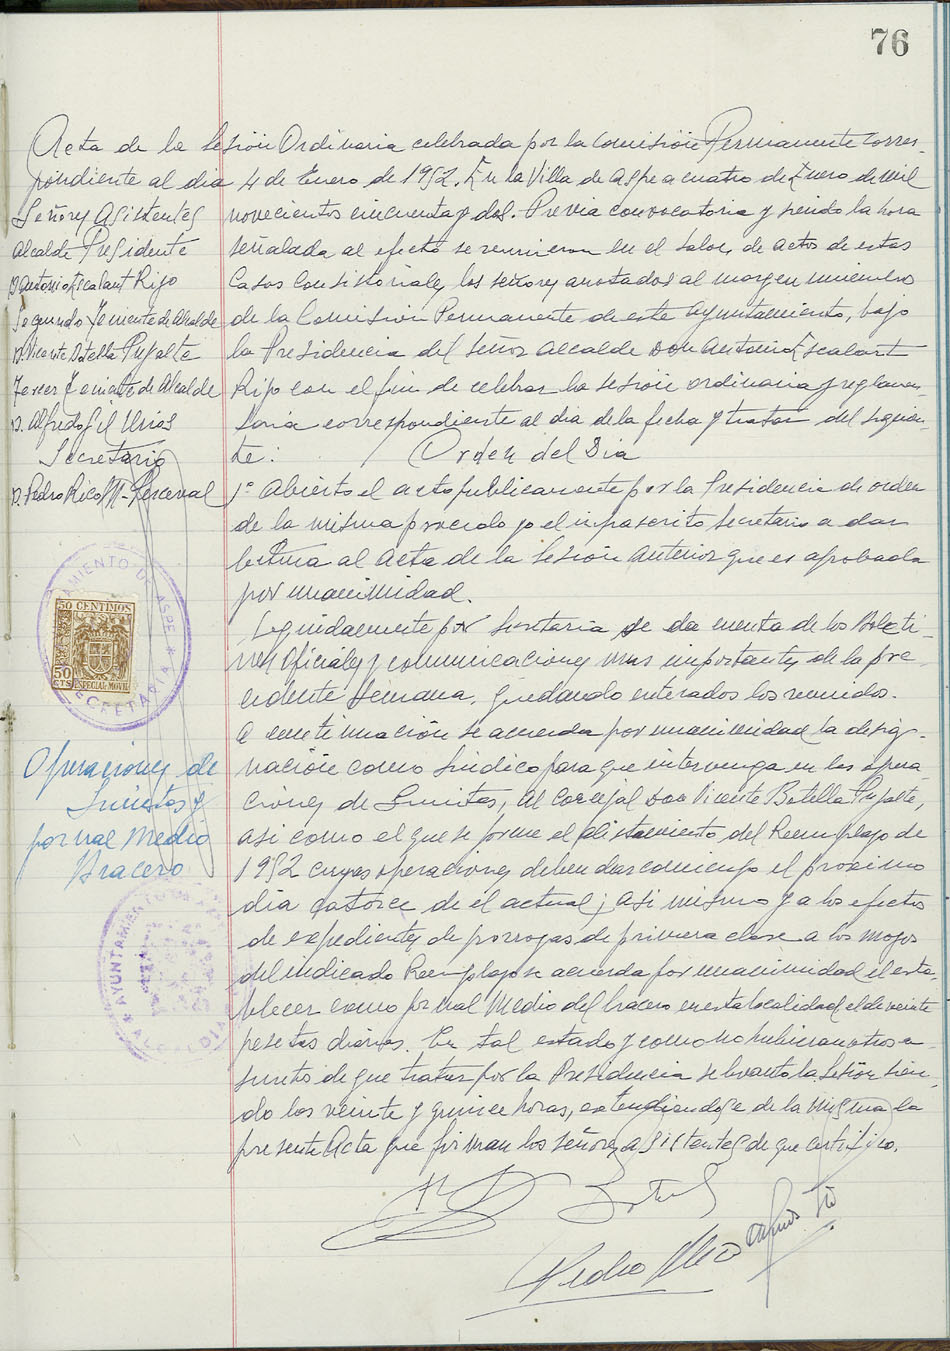 76
Acta de la Sesión Ordinaria celebrada por la Comisión Permanente corres-
pondiente al dia 4 de Enero de 1952. En la Villa de Aspe a cuatro de Enero de mil
Señores Asistentes
novecientos cincuenta y dos. Previa convocatoria y siendo la hora
Alcalde Presidente
señalada al efecto se reunieron en el salon de actos de estas
D. Antonio Escalant Rizo
Casas Consistoriales, los señores anotados al margen miembros
Segundo Teniente de Alcalde
de la Comisión Permanente de este Ayuntamiento, bajo
D. Vicente Botella Pujalte
la Presidencia del Señor Alcalde Don Antonio Escalant
Tercer Teniente de Alcalde
Rizo con el fin de celebrar la sesión ordinaria y reglamen-
D. Alfredo Gil Urios
taria correspondiente al dia de la fecha y tratar del siguien-
Secretario
te: Orden del Dia
D. Pedro Rico M-Perceval
1º Abierto el acto publicamente por la Presidencia de orden
de la misma procedo yo el infrascrito Secretario a dar
lectura al Acta de la Sesión anterior que es aprobada
por unanimidad.
AYUNTAMIENTO DE ASPE
SECRETARIA
50 CENTIMOS
50 CTS
ESPECIAL MOVIL
Seguidamente por Secretaria se da cuenta de los Boleti-
nes Oficiales y comunicaciones mas importantes de la pre-
cedente Semana, quedando enterados los reunidos.
A continuación se acuerda por unanimidad la desig-
Operaciones de
Quintas y
jornal Medio
Bracero
nación como Sindico para que intervenga en las opera-
ciones de Quintas, al Concejal Don Vicente Botella Pujalte,
asi como el que se forme el alistamiento del Reemplazo de
1952 cuyas operaciones deben dar comienzo el próximo
dia catorce de el actual; asi mismo y a los efectos
de expedientes de prorrogas de primera clase a los mozos
del indicado Reemplazo se acuerda por unanimidad el esta-
blecer como jornal Medio del bracero en esta localidad el de veinte
AYUNTAMIENTO DE ASPE
ALCALDIA
pesetas diarias. En tal estado y como no hubieran otros a-
suntos de que tratar por la Presidencia se levanto la Sesión sien-
do las veinte y quince horas, extendiendose de la misma la
presente Acta que firman los señores asistentes de que certifico.
Pedro Rico